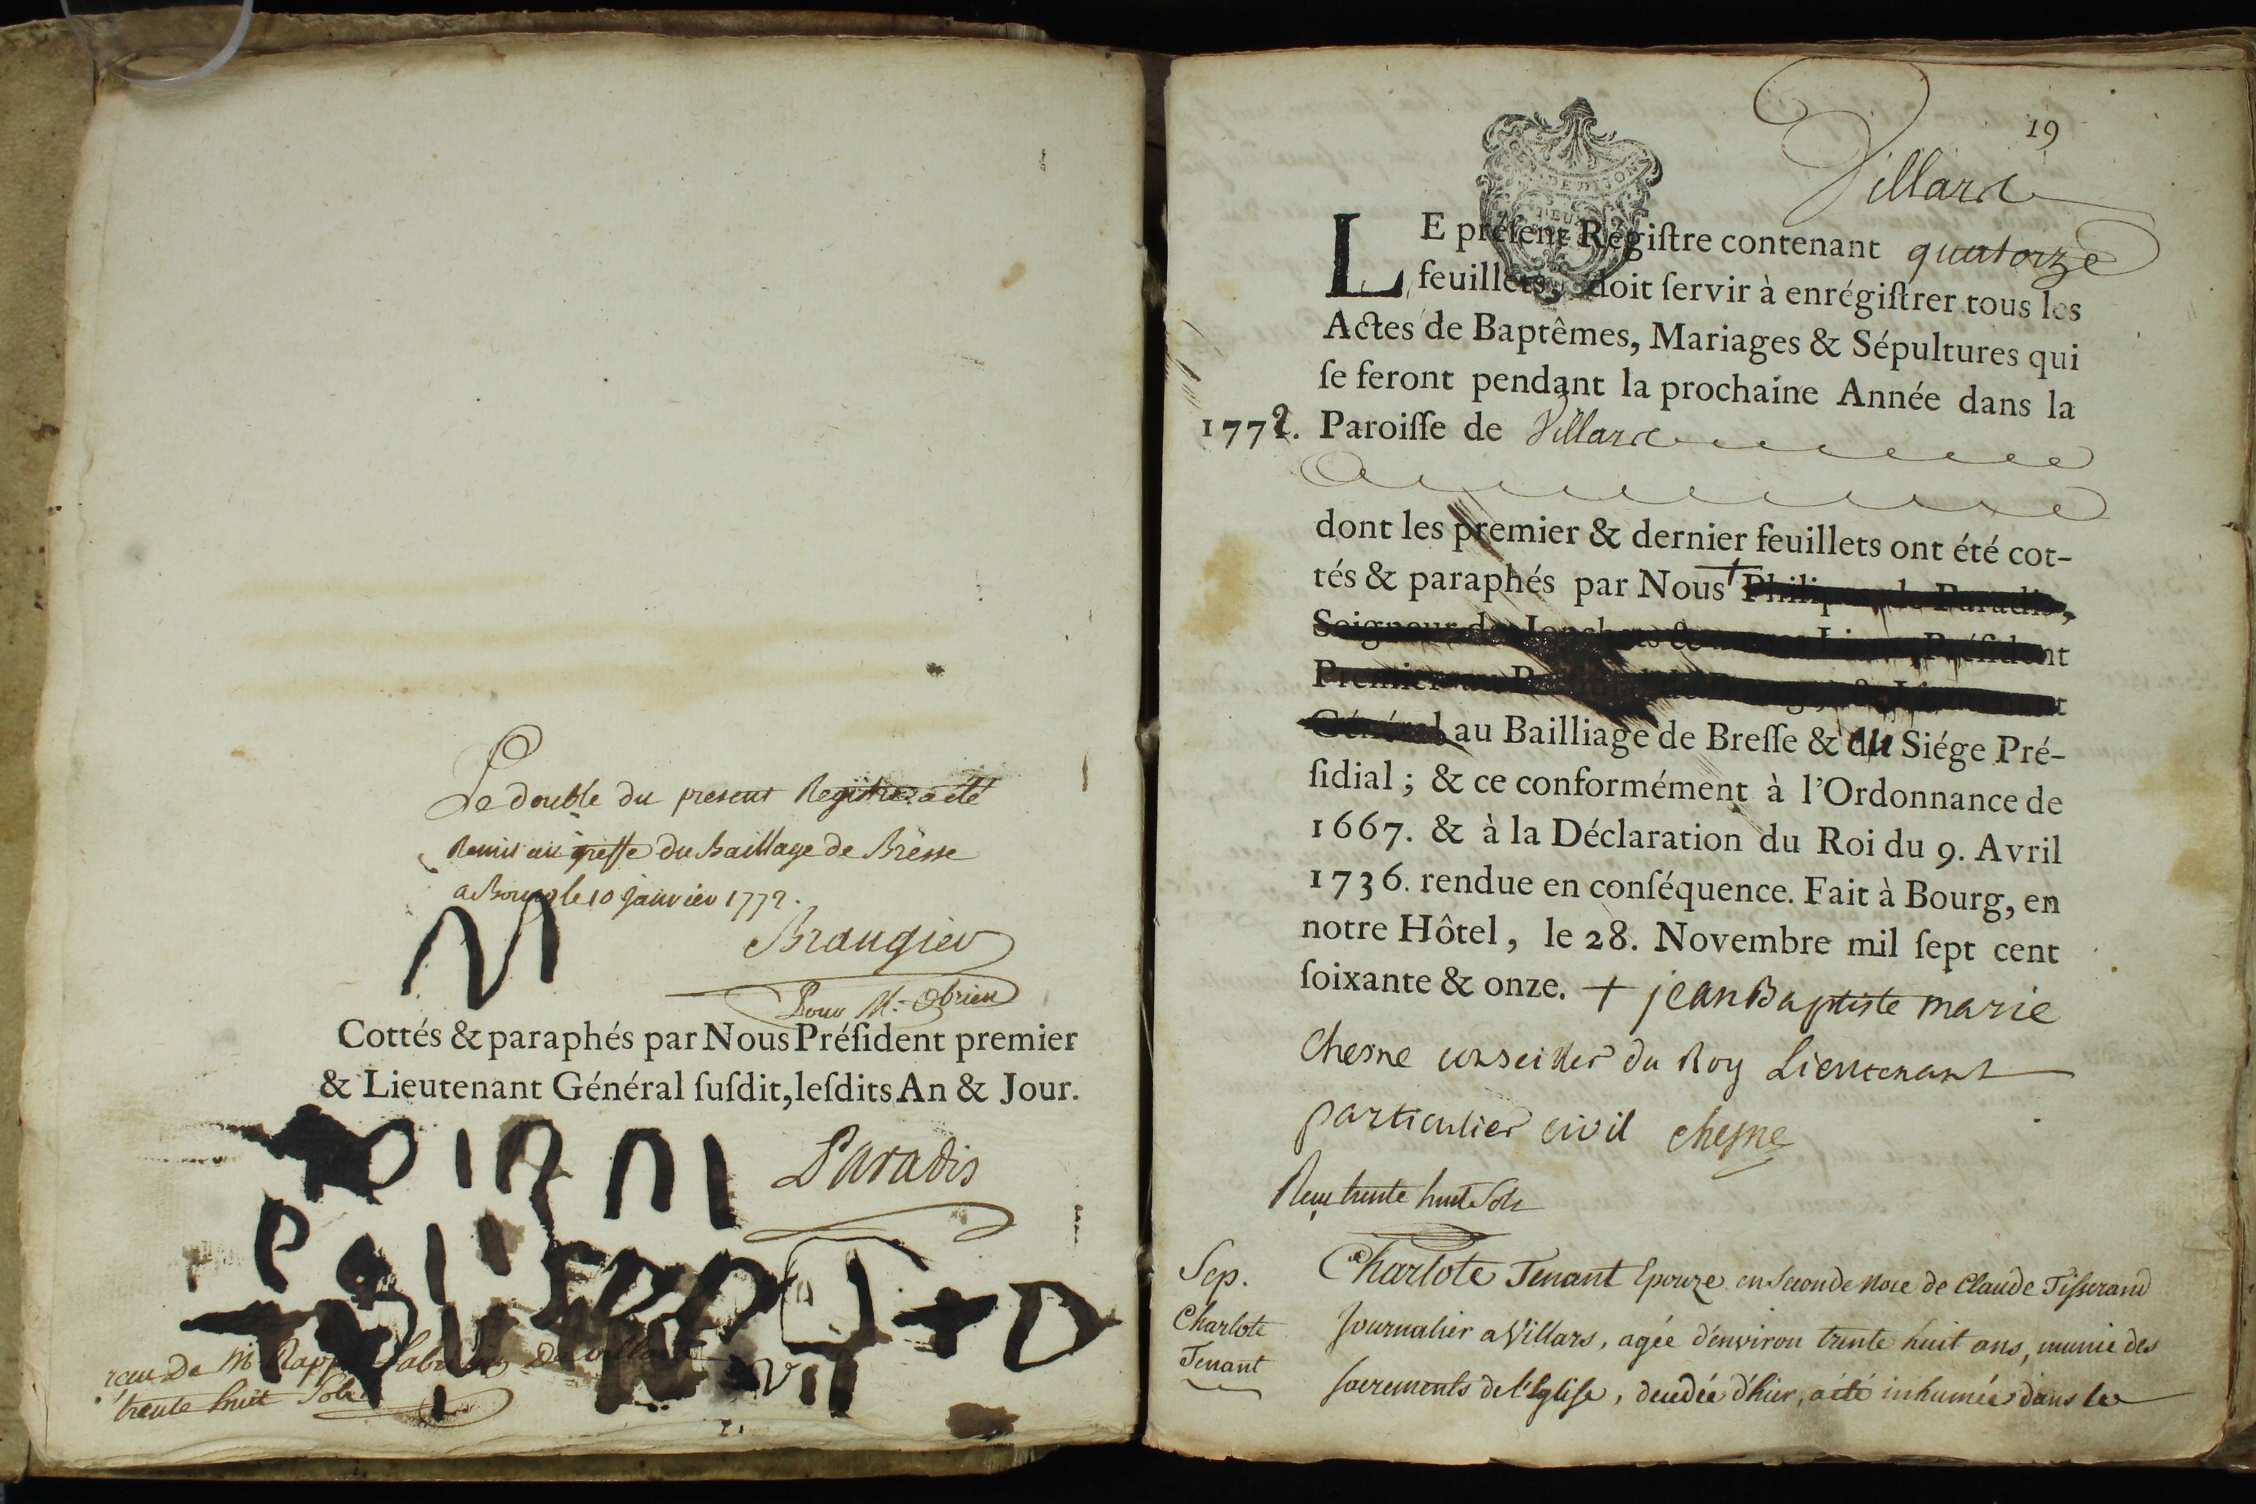 Le double du present Registre a été
Remis au greffe du Bailliage de Bresse
a Bourg le 10 Janvier 1772.
Brangier
Pour M. Obrien
Cottés & paraphés par Nous Préſident premier
& Lieutenant Général ſuſdit, leſdits An & Jour.
Paradis
reçu De M
trente huit Sols
19
Villars
GEN. DE DIJON
LE préſent Régiſtre contenant quatorze
feuillets, doit ſervir à enrégiſtrer tous les
Actes de Baptêmes, Mariages & Sépultures qui
ſe feront pendant la prochaine Année dans la
1772. Paroiſſe de Villars
dont les premier & dernier feuillets ont été cot-
tés & paraphés par Nous + Philippe de Paradis,
Seigneur de Préſident
Premier
Général au Bailliage de Breſſe & du Siége Pré-
ſidial ; & ce conformément à l'Ordonnance de
1667. & à la Déclaration du Roi du 9. Avril
1736. rendue en conſéquence. Fait à Bourg, en
notre Hôtel, le 28. Novembre mil ſept cent
ſoixante & onze. + jean Baptiste marie
Chesne conseiller du Roy Lieutenant
particulier civil chesne
Reçu trente huit Sols
Sep.
Charlote
Tenant
Charlote Tenant Epouze en Seconde Noce de Claude Tisserand
Journalier a Villars, agée d'environ trente huit ans, munie des
sacrements de l'Eglise, decedée d'hier, a été inhumée dans le